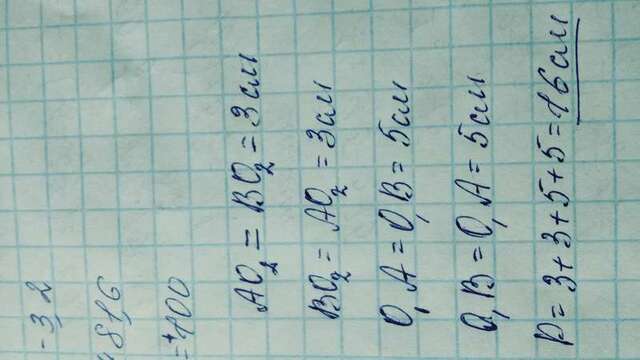 -3,2
81,6
=100
AO₂ = BO₂ = 3 см
BO₂ = AO₂ = 3 см
O₁A = O₁B = 5 см
O₁B = O₁A = 5 см
P = 3+3+5+5 = 16 см